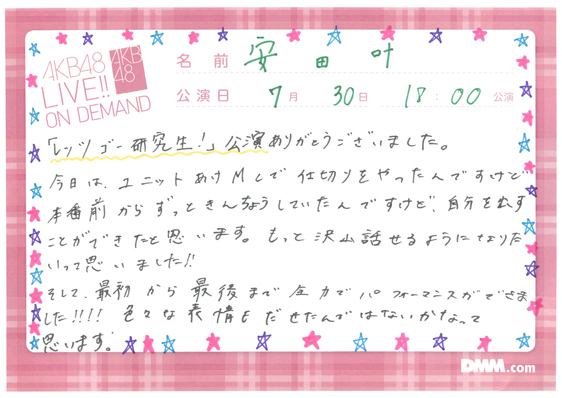 AKB48
LIVE!!
ON DEMAND
AKB
48
名前 安田 叶
公演日 7月 30日 18:00 公演
「レッツゴー研究生!」公演ありがとうございました。
今日は、ユニットあけMCで仕切りをやったんですけど
本番前からずっときんちょうしていたんですけど、自分を出す
ことができたと思います。もっと沢山話せるようになりた
いって思いました!!
そして、最初から最後まで全力でパフォーマンスができま
した!!!! 色々な表情もだせたんではないかなって
思います。
DMM.com